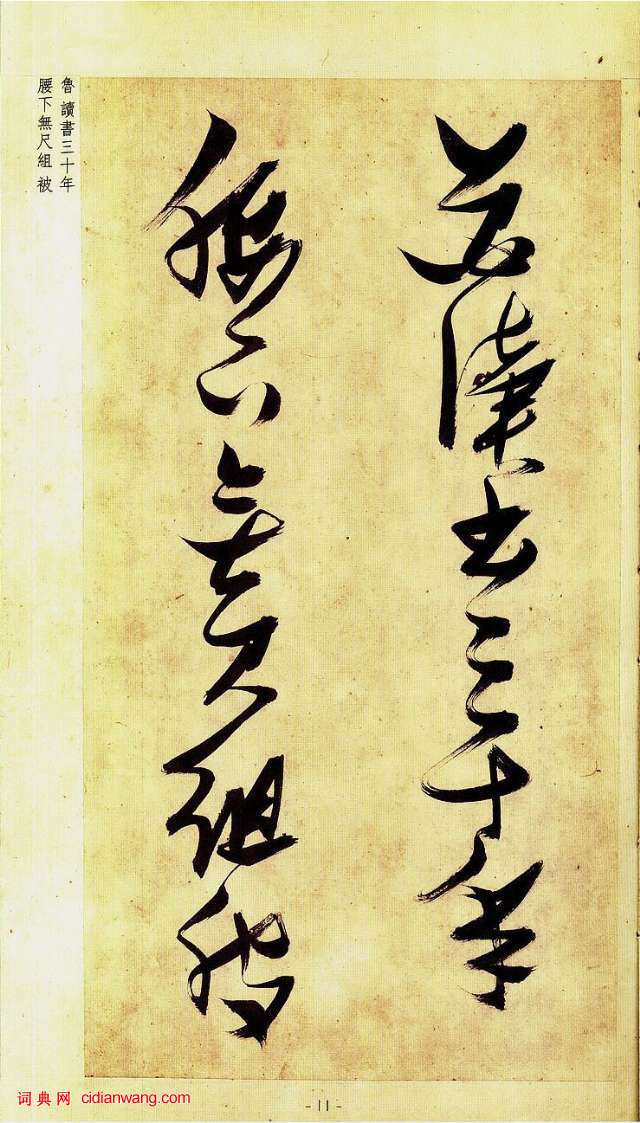 魯讀書三十年
腰下無尺組被
魯 讀書三十年
腰下無尺組 被
词典网 cidianwang.com
- 11 -